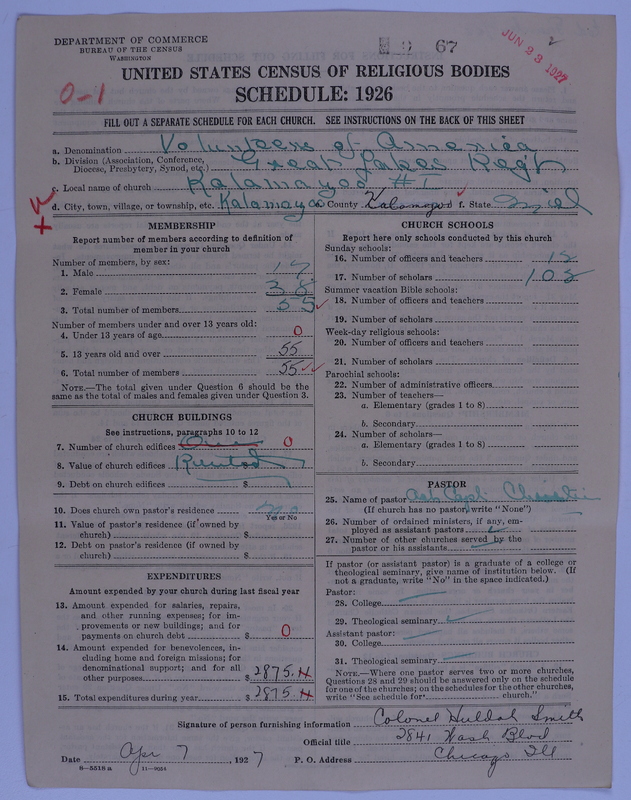 DEPARTMENT OF COMMERCE
BUREAU OF THE CENSUS
WASHINGTON
67
JUN 23 1927
2
UNITED STATES CENSUS OF RELIGIOUS BODIES
SCHEDULE: 1926
0-1
FILL OUT A SEPARATE SCHEDULE FOR EACH CHURCH. SEE INSTRUCTIONS ON THE BACK OF THIS SHEET
a. Denomination Volunteers of America
b. Division (Association, Conference, Diocese, Presbytery, Synod, etc.) Great Lakes Reg't
c. Local name of church Kalamazoo #1
d. City, town, village, or township, etc. Kalamazoo County Kalamazoo f. State Mich
MEMBERSHIP
Report number of members according to definition of
member in your church
Number of members, by sex:
1. Male 17
2. Female 38
3. Total number of members 55
Number of members under and over 13 years old:
4. Under 13 years of age 0
5. 13 years old and over 55
6. Total number of members 55
NOTE.—The total given under Question 6 should be the
same as the total of males and females given under Question 3.
CHURCH BUILDINGS
See instructions, paragraphs 10 to 12
7. Number of church edifices One 0
8. Value of church edifices Rented
9. Debt on church edifices $
10. Does church own pastor's residence no
Yes or No
11. Value of pastor's residence (if owned by
church) $
12. Debt on pastor's residence (if owned by
church) $
EXPENDITURES
Amount expended by your church during last fiscal year
13. Amount expended for salaries, repairs,
and other running expenses; for im-
provements or new buildings; and for
payments on church debt $ 0
14. Amount expended for benevolences, in-
cluding home and foreign missions; for
denominational support; and for all
other purposes $ 2875.
15. Total expenditures during year $ 2875.
CHURCH SCHOOLS
Report here only schools conducted by this church
Sunday schools:
16. Number of officers and teachers 12
17. Number of scholars 108
Summer vacation Bible schools:
18. Number of officers and teachers
19. Number of scholars
Week-day religious schools:
20. Number of officers and teachers
21. Number of scholars
Parochial schools:
22. Number of administrative officers
23. Number of teachers—
a. Elementary (grades 1 to 8)
b. Secondary
24. Number of scholars—
a. Elementary (grades 1 to 8)
b. Secondary
PASTOR
25. Name of pastor
(If church has no pastor, write "None")
26. Number of ordained ministers, if any, em-
ployed as assistant pastors
27. Number of other churches served by the
pastor or his assistants
If pastor (or assistant pastor) is a graduate of a college or
theological seminary, give name of institution below. (If
not a graduate, write "No" in the space indicated.)
Pastor:
28. College
29. Theological seminary
Assistant pastor:
30. College
31. Theological seminary
NOTE.—Where one pastor serves two or more churches,
Questions 28 and 29 should be answered only on the schedule
for one of the churches; on the schedules for the other churches,
write "See schedule for church."
Signature of person furnishing information Colonel Huldah Smith
Official title 2841 Wash Blvd
Date Apr 7 1927 P. O. Address Chicago Ill
8—5518a 11—9054